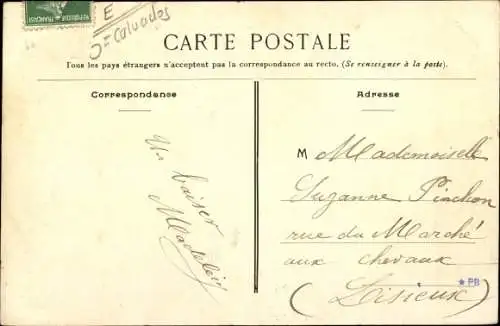 REPUBLIQUE FRANÇAISE
E
Calvados
CARTE POSTALE
Tous les pays étrangers n'acceptent pas la correspondance au recto. (Se renseigner à la poste).
Correspondance
Adresse
Un baiser
Madeleine
M Mademoiselle
Suzanne Pinchon
rue du Marché
aux chevaux
(Lisieux)
* PB